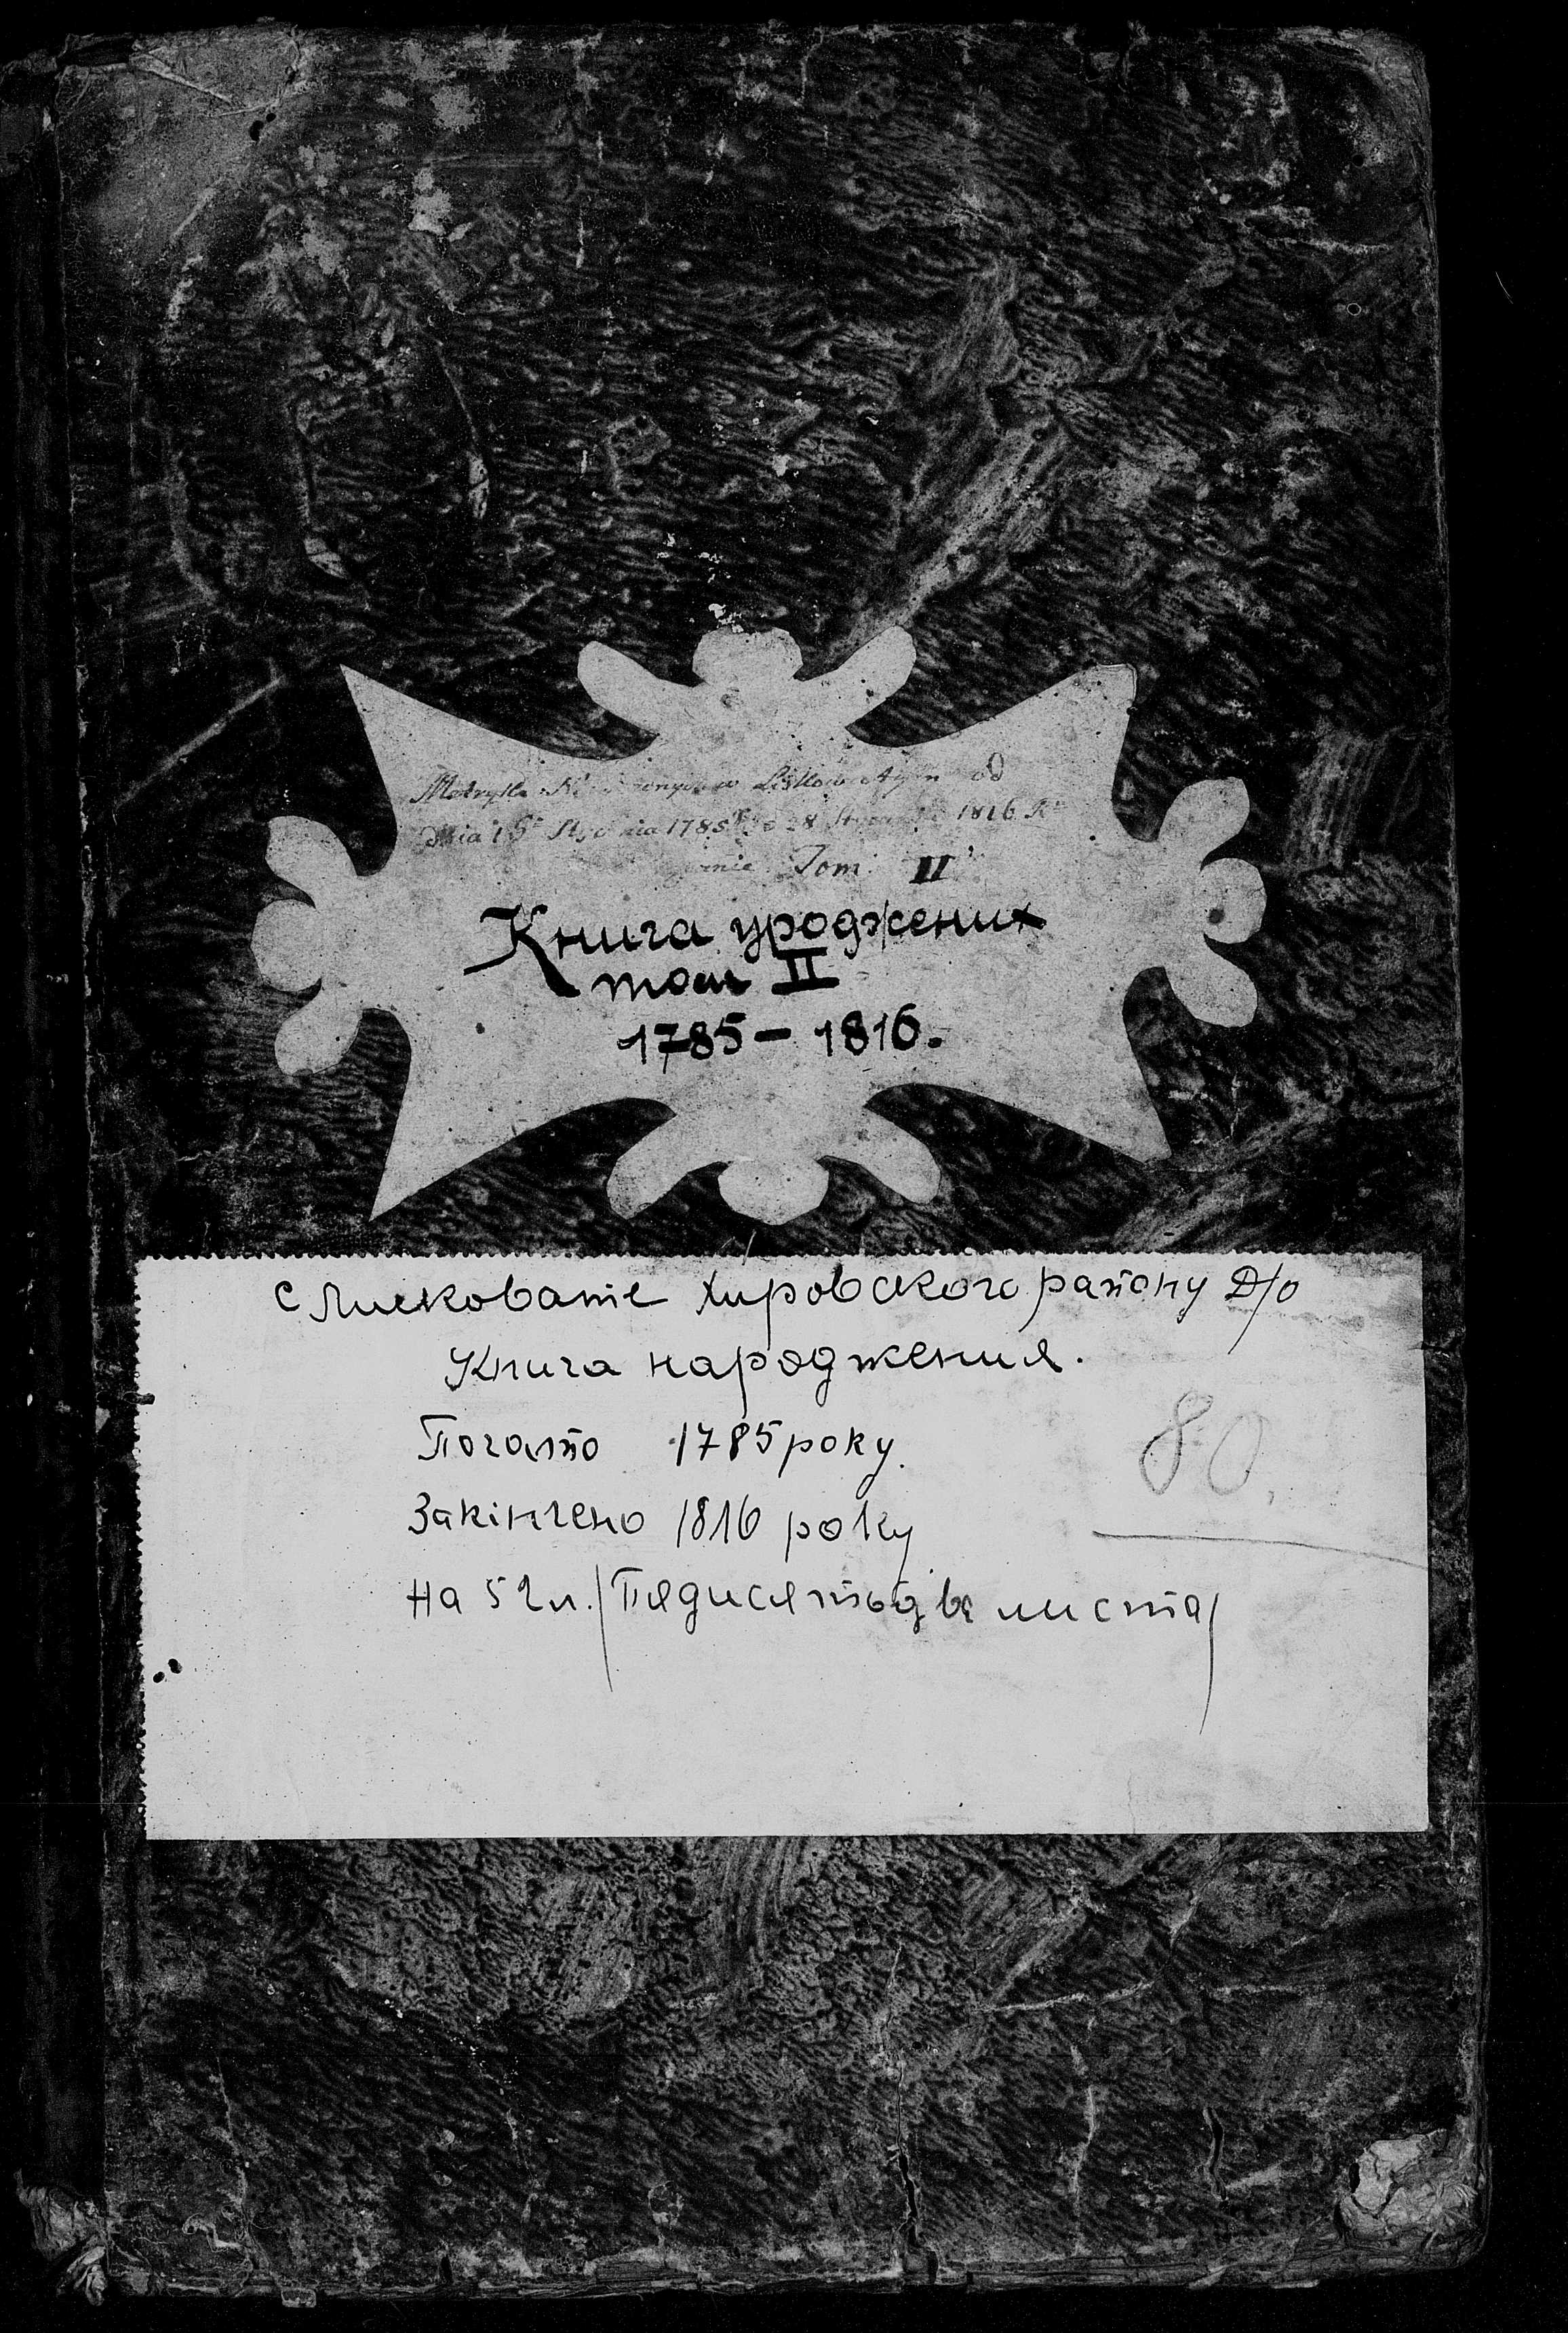 Metryka w Liskowatym od
Dnia 1go Stycznia 1785 do 28 1816 Ru
Tom II
Книга уроджених
том II
1785 – 1816.
с Лисковате Хировского району Д/о
Книга народження.
Почато 1785 року.
80.
Закінчено 1816 року
На 52 л. /Пядисятьдва листа/